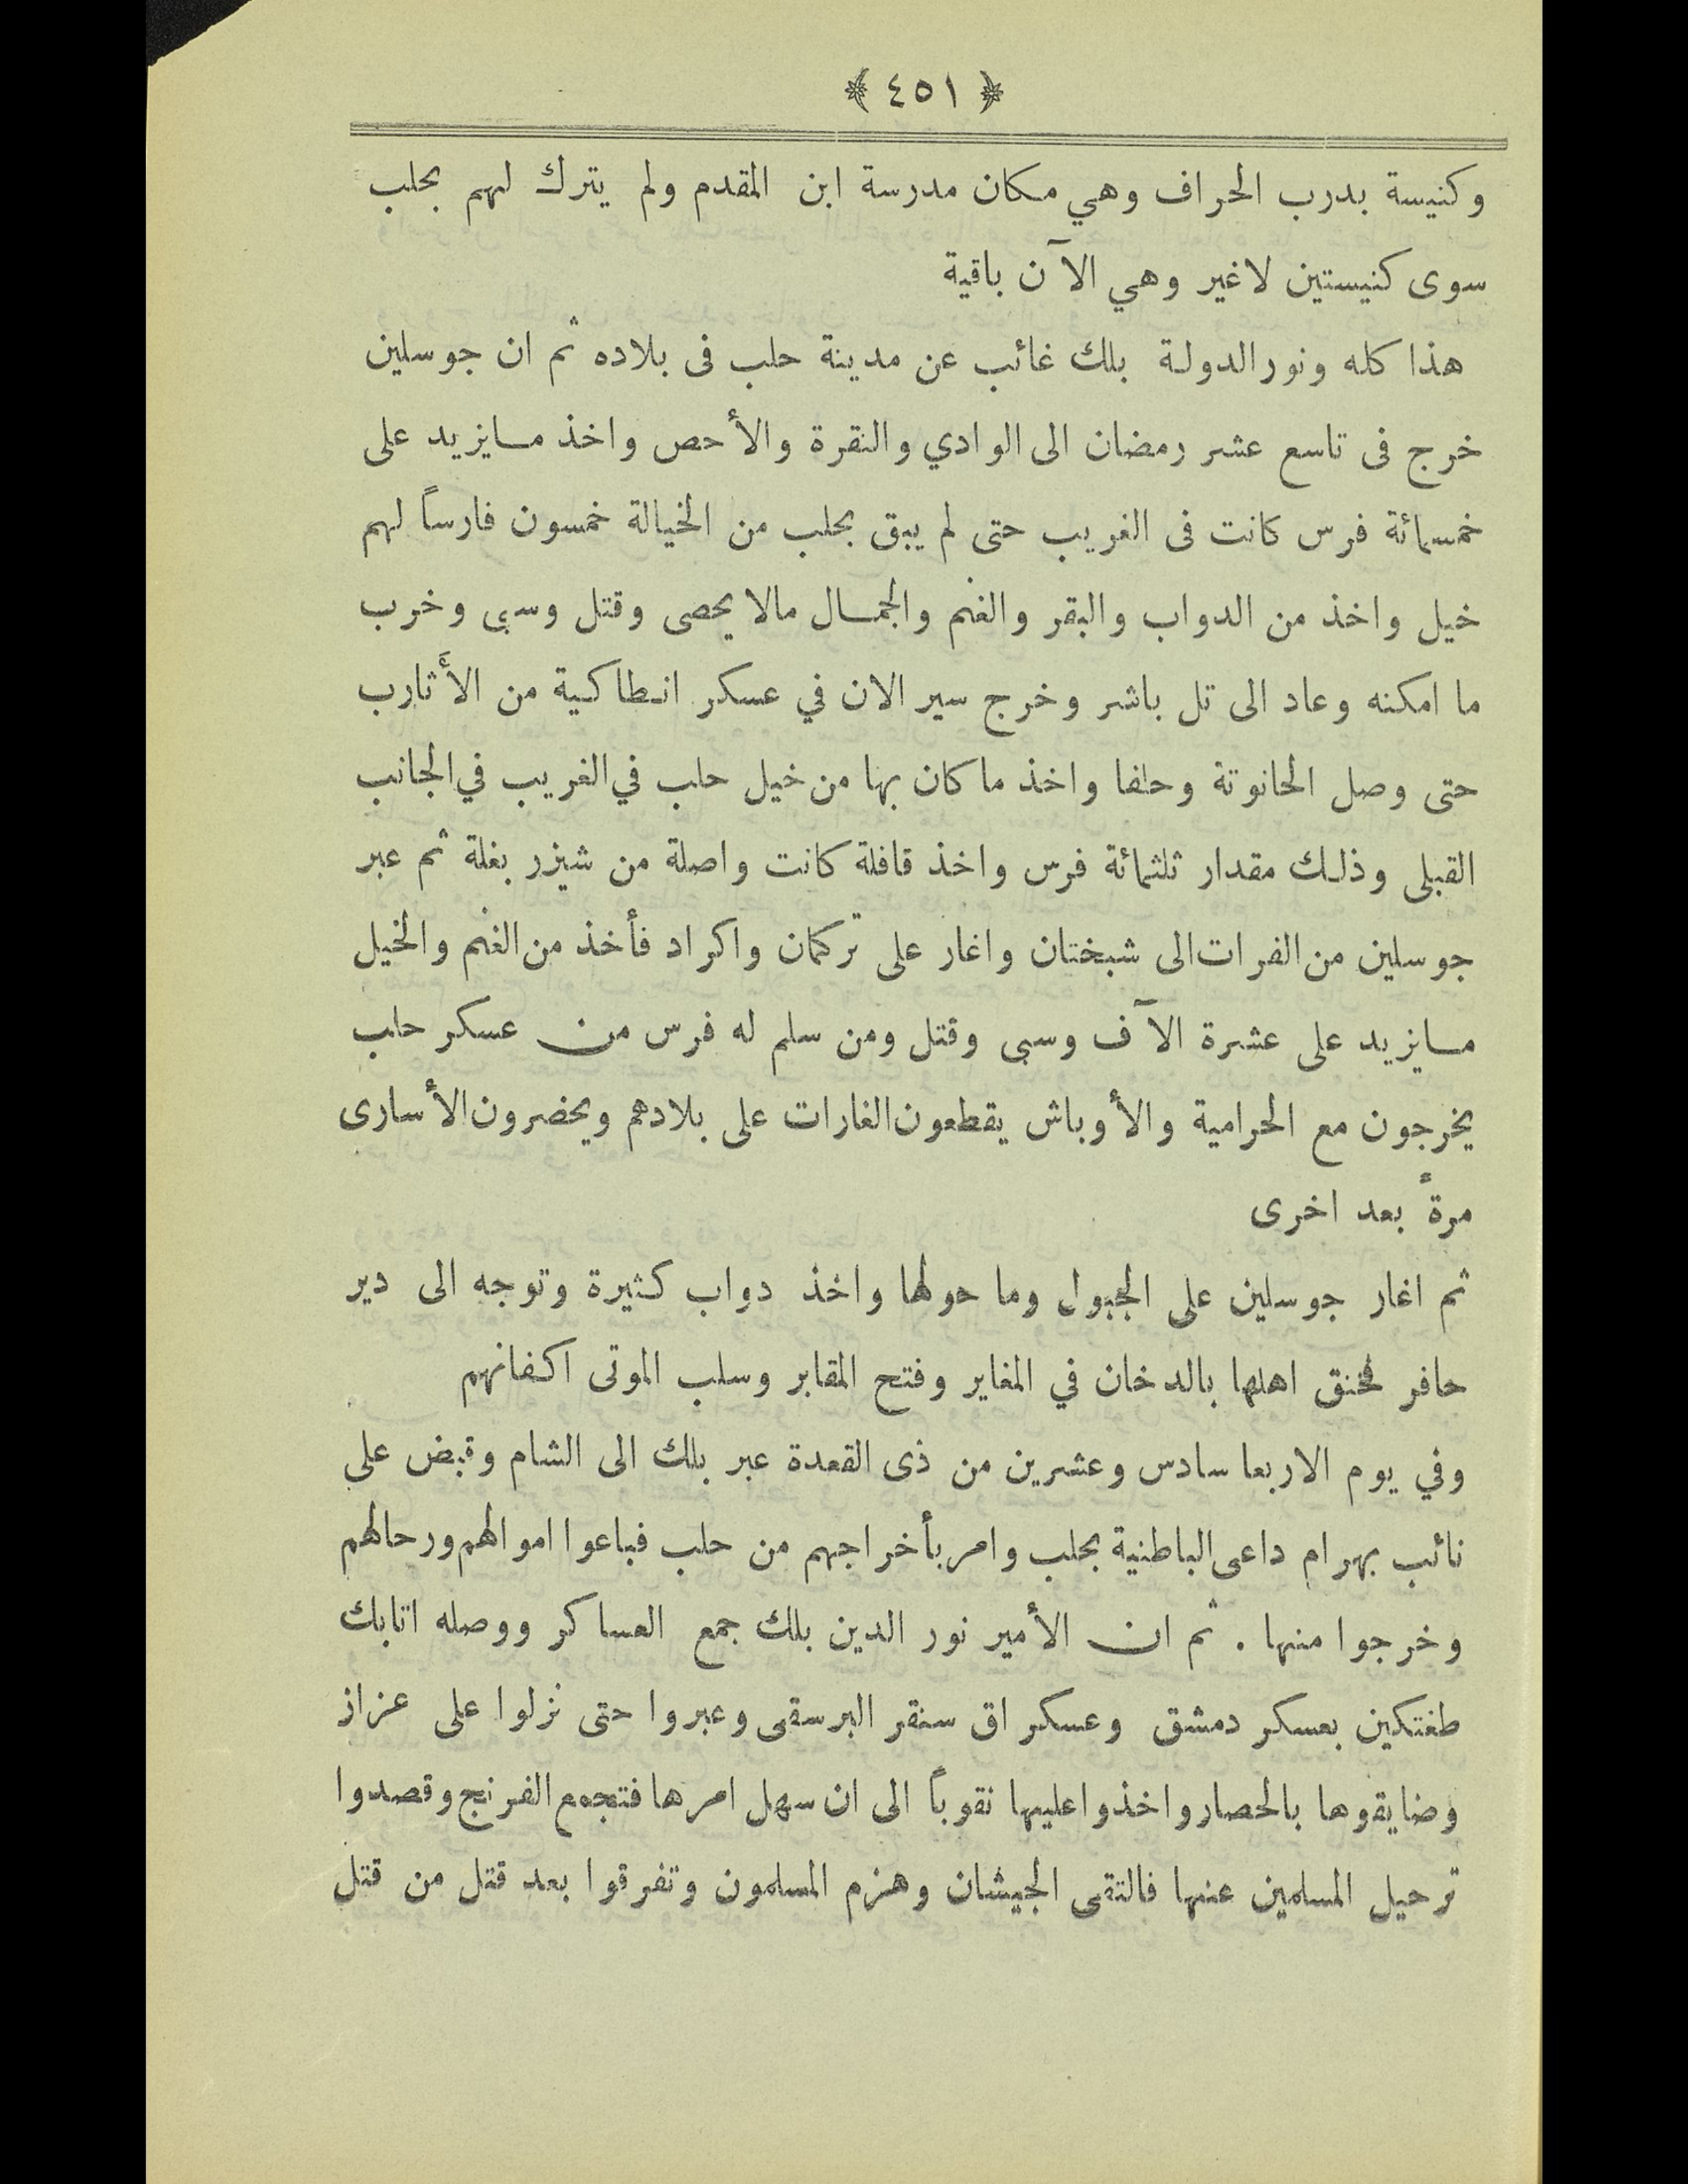 ﴿ ٤٥١ ﴾
وكنيسة بدرب الحراف وهي مكان مدرسة ابن المقدم ولم يترك لهم بحلب
سوى كنيستين لاغير وهي الآن باقية
هذا كله ونور الدولة بلك غائب عن مدينة حلب فى بلاده ثم ان جوسلين
خرج فى تاسع عشر رمضان الى الوادي والنقرة والأحص واخذ مايزيد على
خمسمائة فرس كانت فى الغريب حتى لم يبق بحلب من الخيالة خمسون فارساً لهم
خيل واخذ من الدواب والبقر والغنم والجمال مالا يحصى وقتل وسبى وخرب
ما امكنه وعاد الى تل باشر وخرج سير الان في عسكر انطاكية من الأثارب
حتى وصل الحانوتة وحلفا واخذ ما كان بها من خيل حلب في الغريب في الجانب
القبلى وذلك مقدار ثلثمائة فرس واخذ قافلة كانت واصلة من شيزر بغلة ثم عبر
جوسلين من الفرات الى شبختان واغار على تركمان واكراد فأخذ من الغنم والخيل
مايزيد على عشرة الآف وسبى وقتل ومن سلم له فرس من عسكر حلب
يخرجون مع الحرامية والأوباش يقطعون الغارات على بلادهم ويحضرون الأسارى
مرةً بعد اخرى
ثم اغار جوسلين على الجبول وما حولها واخذ دواب كثيرة وتوجه الى دير
حافر فخنق اهلها بالدخان في المغاير وفتح المقابر وسلب الموتى اكفانهم
وفي يوم الاربعا سادس وعشرين من ذى القعدة عبر بلك الى الشام وقبض على
نائب بهرام داعى الباطنية بحلب وامر بأخراجهم من حلب فباعوا اموالهم ورحالهم
وخرجوا منها . ثم ان الأمير نور الدين بلك جمع العساكر ووصله اتابك
طغتكين بعسكر دمشق وعسكر اق سنقر البرسقى وعبروا حتى نزلوا على عزاز
وضايقوها بالحصار واخذوا عليها نقوباً الى ان سهل امرها فتجمع الفرنج وقصدوا
ترحيل المسلمين عنها فالتقى الجيشان وهزم المسلمون وتفرقوا بعد قتل من قتل